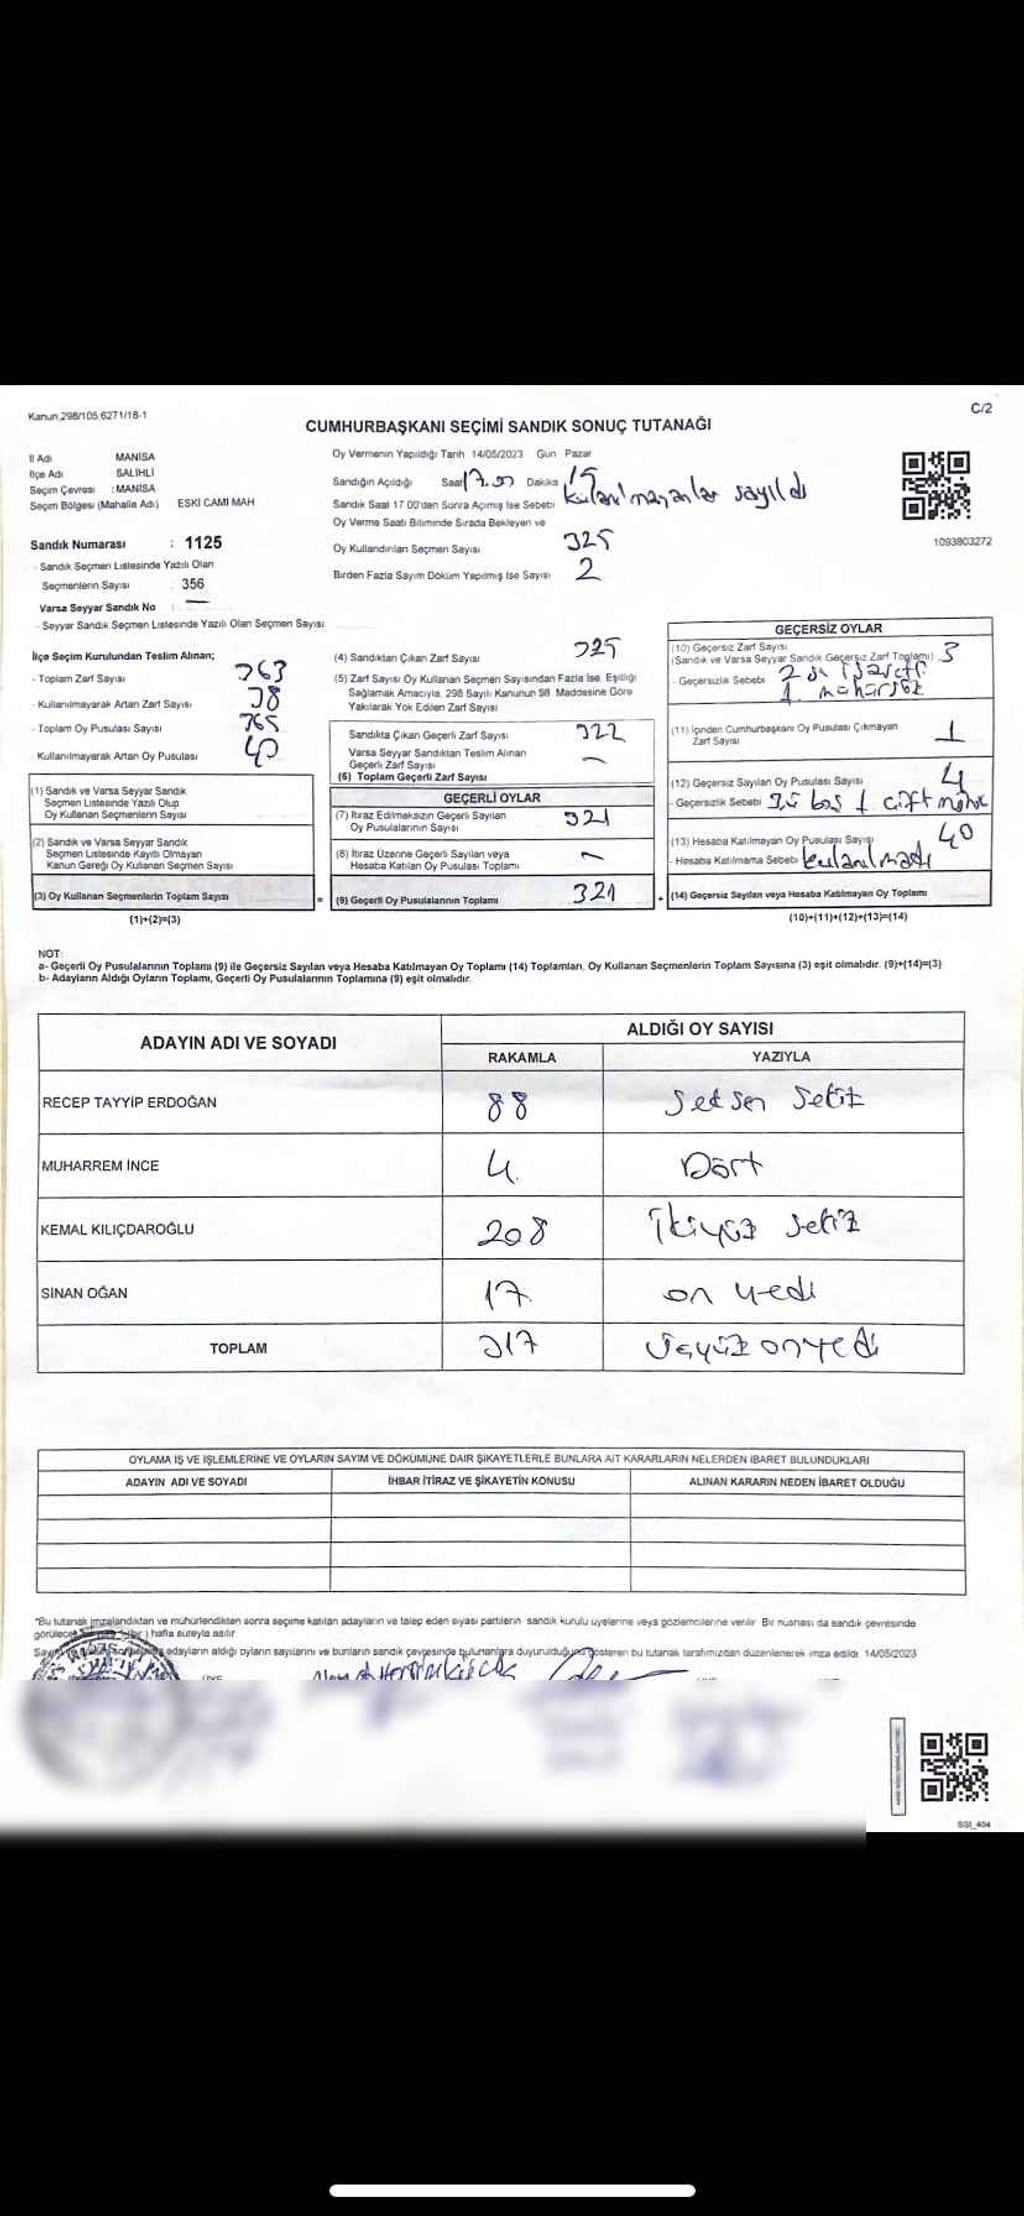 Kanun;298/105 6271/18-1
C/2
CUMHURBAŞKANI SEÇİMİ SANDIK SONUÇ TUTANAĞI
İl Adı MANİSA
İlçe Adı SALİHLİ
Seçim Çevresi : MANİSA
Seçim Bölgesi (Mahalle Adı) ESKİ CAMİ MAH
Sandık Numarası : 1125
- Sandık Seçmen Listesinde Yazılı Olan
Seçmenlerin Sayısı 356
Varsa Seyyar Sandık No : —
- Seyyar Sandık Seçmen Listesinde Yazılı Olan Seçmen Sayısı
Oy Vermenin Yapıldığı Tarih 14/05/2023 Gün Pazar
Sandığın Açıldığı Saat 17.00 Dakika 15
Sandık Saat 17 00'den Sonra Açılmış İse Sebebi kullanılmayanlar sayıldı
Oy Verme Saati Bitiminde Sırada Bekleyen ve
Oy Kullandırılan Seçmen Sayısı 325
Birden Fazla Sayım Döküm Yapılmış İse Sayısı 2
1093803272
İlçe Seçim Kurulundan Teslim Alınan;
- Toplam Zarf Sayısı 363
- Kullanılmayarak Artan Zarf Sayısı 38
- Toplam Oy Pusulası Sayısı 365
- Kullanılmayarak Artan Oy Pusulası 40
(1) Sandık ve Varsa Seyyar Sandık
Seçmen Listesinde Yazılı Olup
Oy Kullanan Seçmenlerin Sayısı
(2) Sandık ve Varsa Seyyar Sandık
Seçmen Listesinde Kayıtlı Olmayan
Kanun Gereği Oy Kullanan Seçmen Sayısı
(3) Oy Kullanan Seçmenlerin Toplam Sayısı
=
(1)+(2)=(3)
(4) Sandıktan Çıkan Zarf Sayısı 325
(5) Zarf Sayısı Oy Kullanan Seçmen Sayısından Fazla İse, Eşitliği
Sağlamak Amacıyla, 298 Sayılı Kanunun 98. Maddesine Göre
Yakılarak Yok Edilen Zarf Sayısı
Sandıkta Çıkan Geçerli Zarf Sayısı 322
Varsa Seyyar Sandıktan Teslim Alınan
Geçerli Zarf Sayısı —
(6) Toplam Geçerli Zarf Sayısı
GEÇERLİ OYLAR
(7) İtiraz Edilmeksizin Geçerli Sayılan
Oy Pusulalarının Sayısı 321
(8) İtiraz Üzerine Geçerli Sayılan veya
Hesaba Katılan Oy Pusulası Toplamı —
(9) Geçerli Oy Pusulalarının Toplamı 321
+
GEÇERSİZ OYLAR
(10) Geçersiz Zarf Sayısı
(Sandık ve Varsa Seyyar Sandık Geçersiz Zarf Toplamı) 3
- Geçersizlik Sebebi 2 si işaretli
1. mühürsüz
(11) İçinden Cumhurbaşkanı Oy Pusulası Çıkmayan
Zarf Sayısı 1
(12) Geçersiz Sayılan Oy Pusulası Sayısı 4
- Geçersizlik Sebebi 3ü boş 1 çift mühür
(13) Hesaba Katılmayan Oy Pusulası Sayısı 40
- Hesaba Katılmama Sebebi kulanılmadı
(14) Geçersiz Sayılan veya Hesaba Katılmayan Oy Toplamı
(10)+(11)+(12)+(13)=(14)
NOT:
a- Geçerli Oy Pusulalarının Toplamı (9) ile Geçersiz Sayılan veya Hesaba Katılmayan Oy Toplamı (14) Toplamları, Oy Kullanan Seçmenlerin Toplam Sayısına (3) eşit olmalıdır. (9)+(14)=(3)
b- Adayların Aldığı Oyların Toplamı, Geçerli Oy Pusulalarının Toplamına (9) eşit olmalıdır.
ADAYIN ADI VE SOYADI ALDIĞI OY SAYISI
RAKAMLA YAZIYLA
RECEP TAYYİP ERDOĞAN 88 Seksen Sekiz
MUHARREM İNCE 4. Dört
KEMAL KILIÇDAROĞLU 208 İkiyüz Sekiz
SİNAN OĞAN 17. on yedi
TOPLAM 317 Üçyüz onyedi
OYLAMA İŞ VE İŞLEMLERİNE VE OYLARIN SAYIM VE DÖKÜMÜNE DAİR ŞİKAYETLERLE BUNLARA AİT KARARLARIN NELERDEN İBARET BULUNDUKLARI
ADAYIN ADI VE SOYADI İHBAR İTİRAZ VE ŞİKAYETİN KONUSU ALINAN KARARIN NEDEN İBARET OLDUĞU
*Bu tutanak imzalandıktan ve mühürlendikten sonra seçime katılan adayların ve talep eden siyasi partilerin sandık kurulu üyelerine veya gözlemcilerine verilir. Bir nüshası da sandık çevresinde
görülecek bir ) hafta süreyle asılır
adayların aldığı oyların sayılarını ve bunların sandık çevresinde bulunanlara duyurulduğunu gösteren bu tutanak tarafımızdan düzenlenerek imza edildi. 14/05/2023
SSI_404